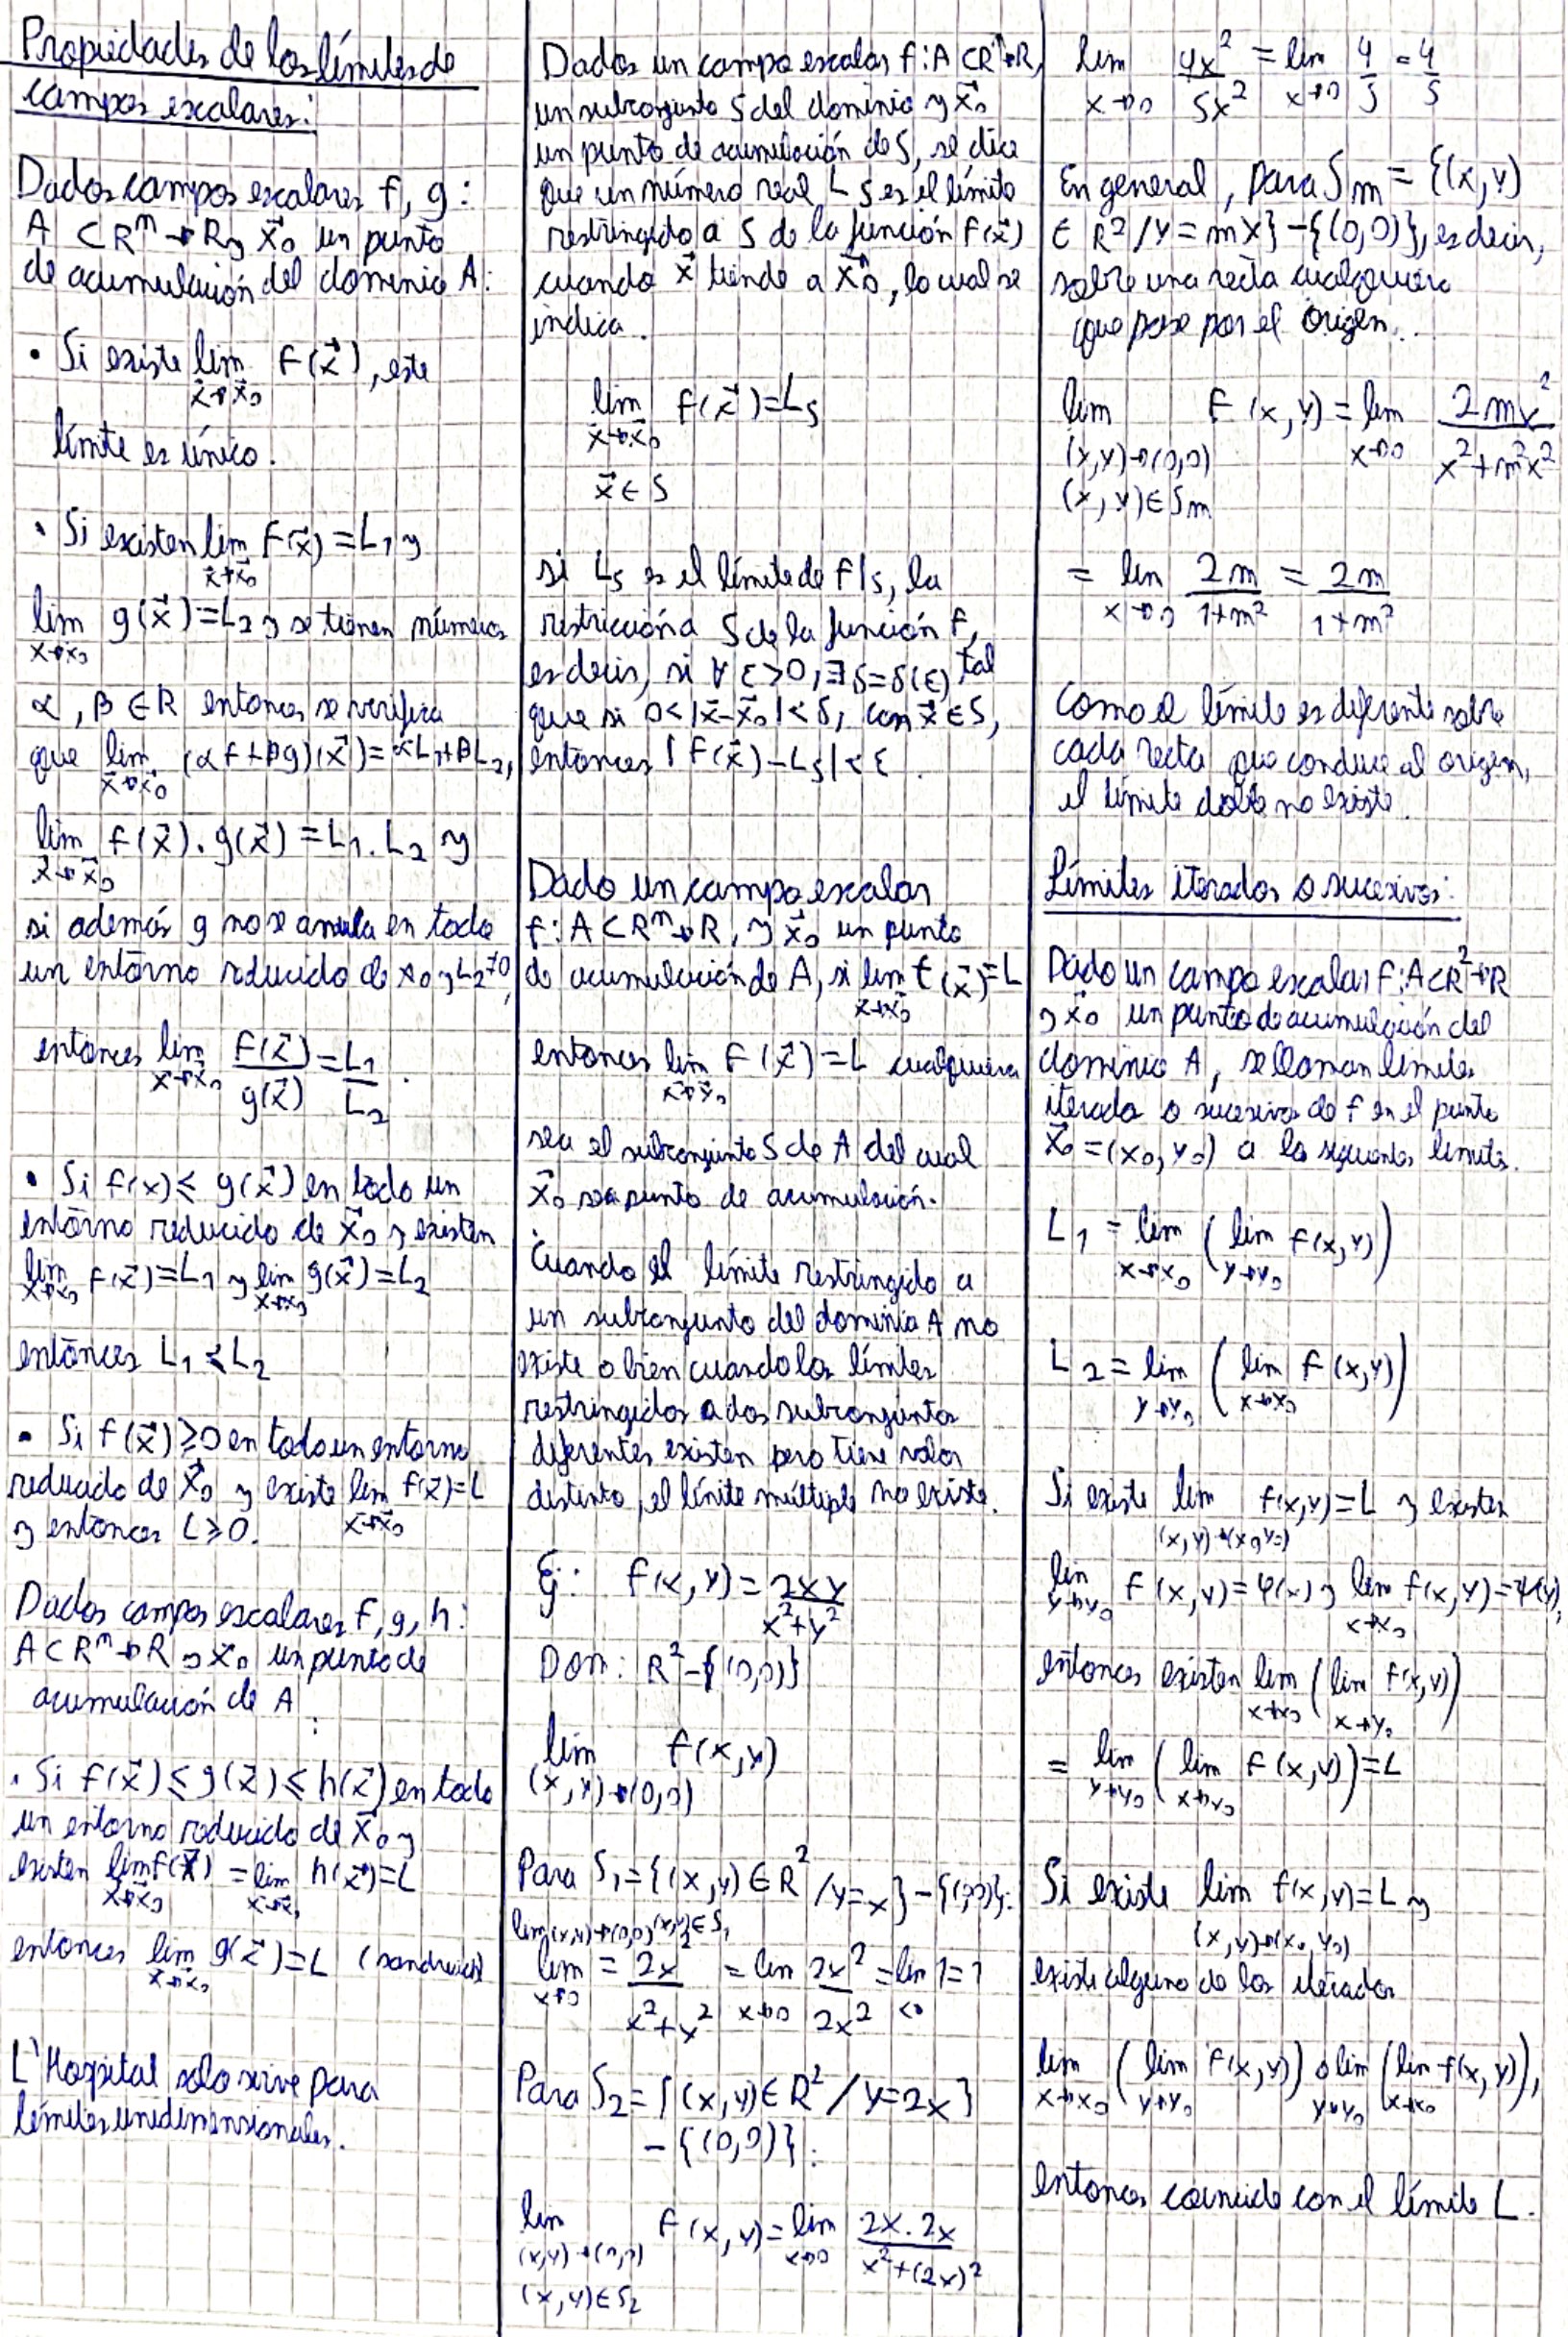 Propiedades de los límites de
campos escalares:
Dados campos escalares f, g:
A ⊂ R^n → R y x⃗₀ un punto
de acumulación del dominio A:
• Si existe lim f(x⃗), este
x⃗→x⃗₀
límite es único.
• Si existen lim f(x⃗) = L₁ y
x⃗→x⃗₀
lim g(x⃗) = L₂ y se tienen números
x→x₀
α, β ∈ R entonces se verifica
que lim (αf+βg)(x⃗) = αL₁+βL₂,
x⃗→x⃗₀
lim f(x⃗).g(x⃗) = L₁.L₂ y
x⃗→x⃗₀
si además g no se anula en todo
un entorno reducido de x₀ y L₂≠0,
entonces lim f(x⃗)/g(x⃗) = L₁/L₂.
x⃗→x⃗₀
• Si f(x) ≤ g(x⃗) en todo un
entorno reducido de x⃗₀ y existen
lim f(x⃗) = L₁ y lim g(x⃗) = L₂
x→x₀ x→x₀
entonces L₁ ≤ L₂
• Si f(x⃗) ≥ 0 en todo un entorno
reducido de x⃗₀ y existe lim f(x⃗) = L
x→x₀
y entonces L ≥ 0.
Dados campos escalares f, g, h:
A ⊂ R^n → R y x⃗₀ un punto de
acumulación de A:
• Si f(x⃗) ≤ g(x⃗) ≤ h(x⃗) en todo
un entorno reducido de x⃗₀ y
existen lim f(x⃗) = lim h(x⃗) = L
x⃗→x⃗₀ x⃗→x⃗₀
entonces lim g(x⃗) = L (sandwich)
x⃗→x⃗₀
L'Hospital solo sirve para
límites unidimensionales.
Dados un campo escalar f: A ⊂ R^n → R,
un subconjunto S del dominio y x⃗₀
un punto de acumulación de S, se dice
que un número real L s es el límite
restringido a S de la función f(x⃗)
cuando x⃗ tiende a x⃗₀, lo cual se
indica.
lim f(x⃗) = Ls
x⃗→x⃗₀
x⃗ ∈ S
si Ls es el límite de f|s, la
restricción a S de la función f,
es decir, si ∀ ε>0, ∃ δ=δ(ε) tal
que si 0<|x⃗-x⃗₀|<δ, con x⃗ ∈ S,
entonces |f(x⃗)-Ls|<ε.
Dado un campo escalar
f: A ⊂ R^n → R, y x⃗₀ un punto
de acumulación de A, si lim f(x⃗) = L
x→x₀
entonces lim f(x⃗) = L cualquiera
x⃗→x⃗₀
sea el subconjunto S de A del cual
x⃗₀ sea punto de acumulación.
Cuando el límite restringido a
un subconjunto del dominio A no
existe o bien cuando los límites
restringidos a dos subconjuntos
diferentes existen pero tiene valor
distinto, el límite múltiple no existe.
Ej: f(x,y) = 2xy/(x²+y²)
Dom: R²-{(0,0)}
lim f(x,y)
(x,y)→(0,0)
Para S₁={(x,y) ∈ R² / y=x}-{(0,0)}:
lim (x,y)→(0,0) (x,y)∈S₁
lim = 2x²/(x²+x²) = lim 2x²/2x² = lim 1 = 1
x→0 x→0
Para S₂={(x,y) ∈ R² / y=2x}
-{(0,0)}:
lim f(x,y) = lim 2x.2x/(x²+(2x)²)
(x,y)→(0,0) x→0
(x,y)∈S₂
lim 4x²/5x² = lim 4/5 = 4/5
x→0 x→0
En general, para Sm = {(x,y)
∈ R² / y=mx}-{(0,0)}, es decir,
sobre una recta cualquiera
que pase por el origen..
lim f(x,y) = lim 2mx²/(x²+m²x²)
(x,y)→(0,0) x→0
(x,y)∈Sm
= lim 2m/(1+m²) = 2m/(1+m²)
x→0
Como el límite es diferente sobre
cada recta que conduce al origen,
el límite doble no existe.
Límites iterados o sucesivos:
Dado un campo escalar f: A ⊂ R² → R
y x⃗₀ un punto de acumulación del
dominio A, se llaman límites
iterados o sucesivos de f en el punto
x⃗₀=(x₀,y₀) a los siguientes límites.
L₁ = lim (lim f(x,y))
x→x₀ y→y₀
L₂ = lim (lim f(x,y))
y→y₀ x→x₀
Si existe lim f(x,y) = L y existen
(x,y)→(x₀,y₀)
lim f(x,y) = φ(x) y lim f(x,y) = ψ(y),
y→y₀ x→x₀
entonces existen lim (lim f(x,y))
x→x₀ x→y₀
= lim (lim f(x,y)) = L
y→y₀ x→x₀
Si existe lim f(x,y) = L y
(x,y)→(x₀,y₀)
existe alguno de los iterados
lim (lim f(x,y)) o lim (lim f(x,y)),
x→x₀ y→y₀ y→y₀ x→x₀
entonces coincide con el límite L.